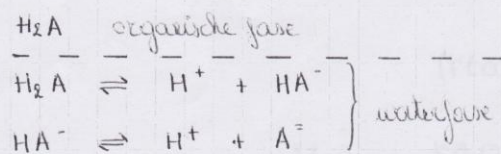 H₂A organische fase
H₂A ⇌ H⁺ + HA⁻
HA⁻ ⇌ H⁺ + A⁼
waterfase